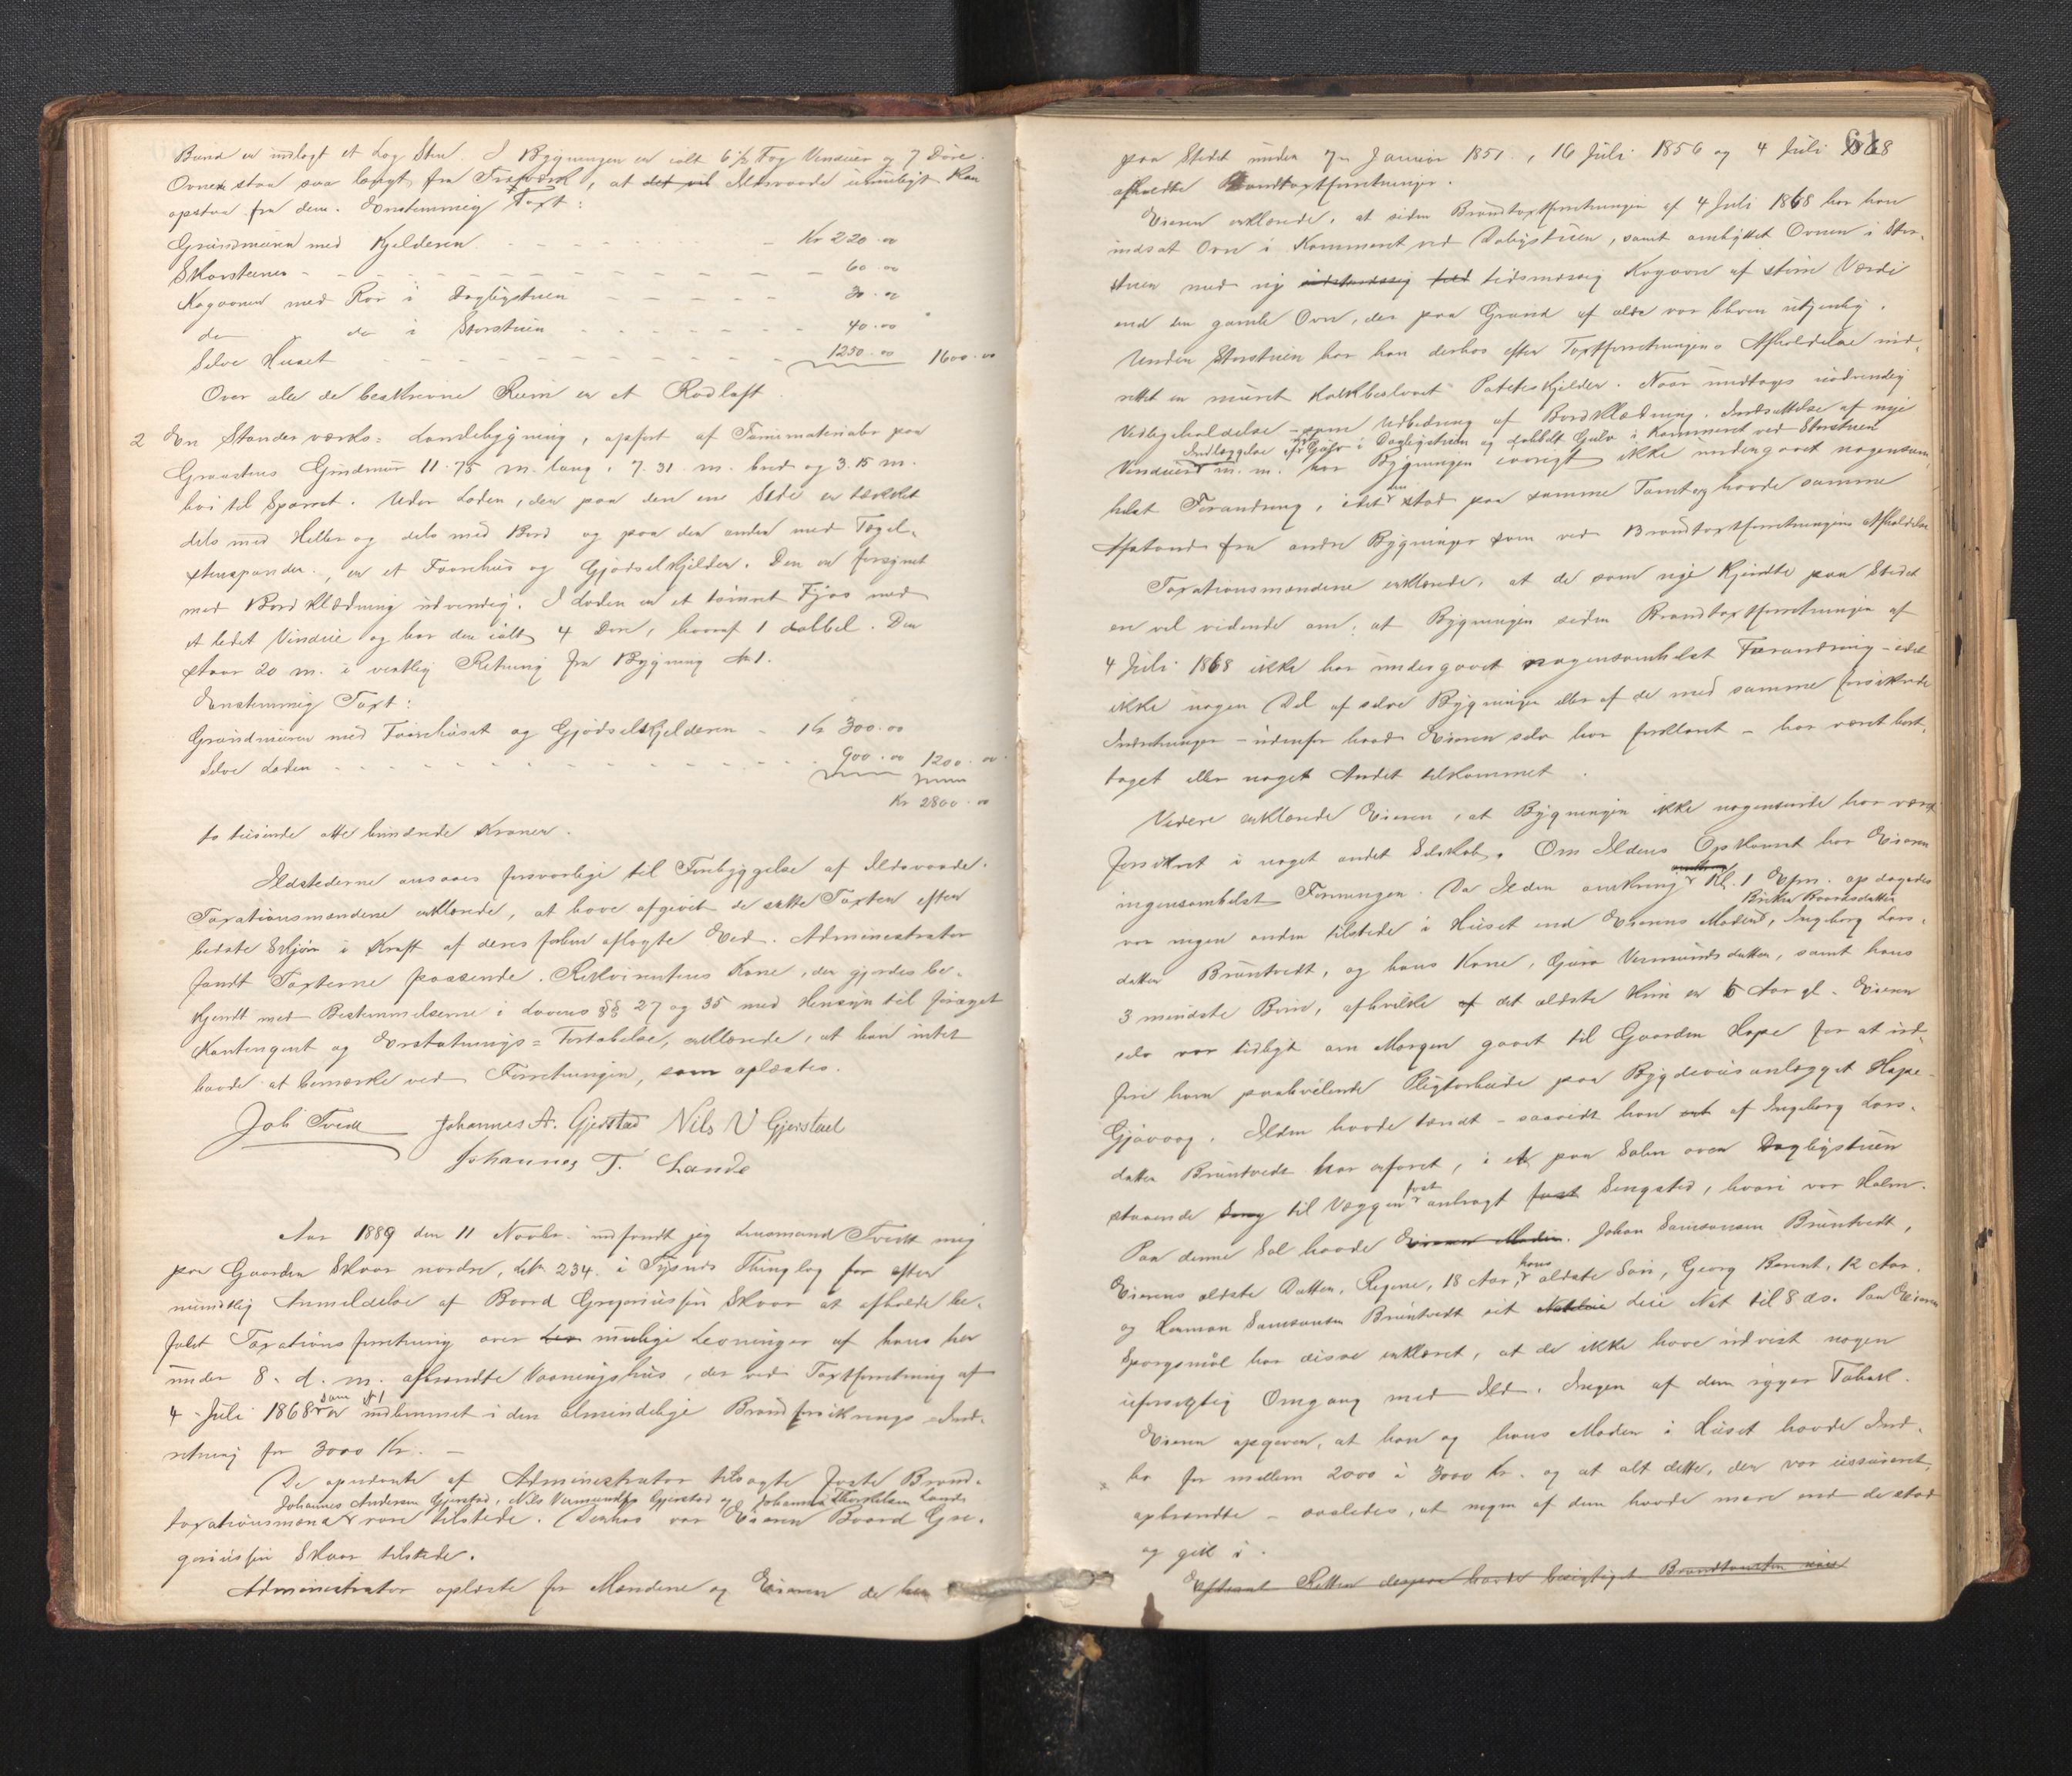 Bund er indlagt et Lag Sten. I Bygningen er ialt 6½ Fag Vinduer og 7 Döre.
Ovnen staa saa langt fra Træværk, at det vil Ildsvaade umuligt kan
opstaa fra dem. Enstemmig Taxt:
Grundmuren med Kjelderen - - - Kr 220.00
Skorstenen - - - 60.00
Kogovnen med Rör i Dagligstuen - - - 30.00
do do i Storstuen - - - 40.00
Selve Huset - - - 1250.00 1600.00
Over alle de beskrevne Rum er et Rodloft
2 En Standerværks= Londebygning, opfört af Furumaterialer paa
Graastens Grundmur 11.75 m. lang, 7.31 m. bred og 3.15 m.
höi til Sparret. Under Laden, der paa den ene Side er tækket
dels med Heller og dels med Bord og paa den anden med Tegl-
stenspander, er et Faarehus og Gjödselkjelder. Den er forsynet
med Bordklædning udvendig. I Laden er et tömret Fjös med
et ledet Vindue og har den ialt 4 Döre, hvoraf 1 dobbel. Den
staar 20 m. i vestlig Retning fra Bygning №1.
Enstemmig Taxt:
Grundmuren med Faarehuset og Gjödselkjelderen - Kr 300.00
Selve Laden - - - 900.00 1200.00
Kr 2800.00
to tusinde otte hundrede Kroner.
Ildstederne ansaaes forsvarlige til Forebyggelse af Ildsvaade.
Taxationsmændene erklærede, at have afgivet de satte Taxter efter
bedste Skjön i Kraft af deres forhen aflagte Ed. Administrator
fandt Taxterne passende. Rekvirentens Kone, der gjordes be-
kjendt med Bestemmelserne i Lovens §§ 27 og 35 med Hensyn til foröget
Kontingent og Erstatnings= Fortabelse, erklærede, at hun intet
havde at bemærke ved Forretningen, som oplæstes.
Joh Tvedt Johannes A. Gjerstad Nils V Gjerstad
Johannes T. Lande
Aar 1889 den 11 Novbr. indfandt jeg Lensmand Tvedt mig
paa Gaarden Skaar nordre, LNr 234. i Tysnes Thinglag for efter
mundtlig Anmeldelse af Baard Gregoriussen Skaar at afholde be-
falet Taxationsforretning over Lev mulige Levninger af hans her
under 8. d. m. afbrændte Vaaningshus, der ved Taxtforretning af
4 Juli 1868 er som № 1 indlemmet i den almindelige Brandforsikrings-Ind-
retning for 3000 Kr. —
De opnævnte af Administrator tilsagte faste Brand-
Johannes Andersen Gjerstad, Nils Vermundsen Gjerstad og Johannes Thorkelsen Lande
taxationsmænd vare tilstede. Derhos var Eieren Baard Gre-
goriussen Skaar tilstede.
Administrator oplæste for Mændene og Eieren de her
61
paa Stedet under 7de Januar 1851, 16 Juli 1856 og 4 Juli 1868
afholdte Brandtaxtforretninger.
Eieren erklærede, at siden Brandtaxtforretningen af 4 Juli 1868 har han
indsat Ovn i Kammeret ved Dagligstuen, samt ombyttet Ovnen i Stor-
stuen med ny tidsmæssig Kogovn af större Værdi
end den gamle Ovn, der paa Grund af ælde var bleven utjenlig.
Under Storstuen har han derhos efter Taxtforretningens Afholdelse ind-
rettet en muret kalkbeslaaet Potetkjelder. Naar undtages nödvendig
Vedligeholdelse - som Udbedring af Bordklædning. Indsættelse af nye
Indlæggelse af nyt Gulv i Dagligstuen og dobbelt Gulv i Kammeret ved Storstuen
Vinduer m. m. har Bygningen iövrigt ikke undergaaet nogensom-
helst Forandring, idet den stod paa samme Tomt og havde samme
Afstand fra andre Bygninger som ved Brandtaxtforretningens Afholdelse
Taxationsmændene erklærede, at de som nöie kjendte paa Stedet
er vel vidende om, at Bygningen siden Brandtaxtforretningen af
4 Juli 1868 ikke har undergaaet nogensomhelst Forandring - idet
ikke nogen Del af selve Bygningen eller af de med samme forsikrede
Indretninger - udenfor hvad Eieren selv har forklaret - har været bort-
taget eller noget Andet tilkommet.
Videre erklærede Eieren, at Bygningen ikke nogensinde har været
forsikret i noget andet Selskab. Om Ildens Opkomst har Eieren
ingensomhelst Formening. Da Ilden omkring Kl. 1 Efm. opdagedes
Brithe Baardsdatter
var ingen anden tilstede i Huset end Eierens Moder, Ingeborg Lars-
datter Bruntvedt, og hans Kone, Guro Vermundsdatter, samt hans
3 mindste Börn, afhvilke af det ældste kun er 5 Aar gl. Eieren
selv var tidligt om Morgen gaaet til Gaarden Hope for at ud-
före ham paahvilende Pligtarbeide paa Bygdeveisanlægget Hope-
Gjövaag. Ilden havde tændt - saavidt han af Ingeborg Lars-
datter Bruntvedt har erfaret, i et paa Salen over Dagligstuen
staaende Seng til Væggen fast anbragt fast Sengsted, hvori var Halm.
Paa denne Sal havde Eierens Moder. Johan Samsonsen Bruntvedt,
Eierens ældste Datter, Regine, 18 Aar, hans ældste Sön, Georg Bernt, 12 Aar.
og Herman Samsonsen Bruntvedt sit Natteleie Leie Nat til 8 ds. Paa Eierens
Spörgsmål har disse erklæret, at de ikke have udvist nogen
uforsigtig Omgang med Ild. Ingen af dem röger Tobak.
Eieren opgiver, at han og hans Moder i Huset havde Ind-
bo for mellem 2000 à 3000 Kr. og at alt dette, der var uassureret,
opbrændte - saaledes, at ingen af dem havde mere end de stod
og gik i.
Efterat Retten derpaa havde besigtiget Brandtomten